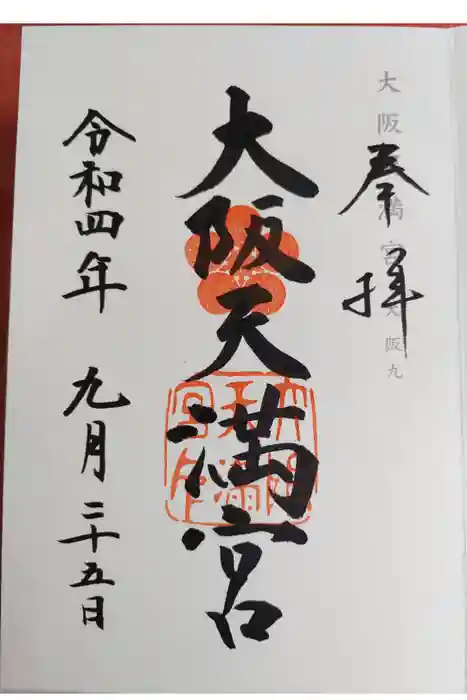 奉拝
大阪天満宮
大阪九
大阪天満宮
大阪天満宮
令和四年 九月二十五日